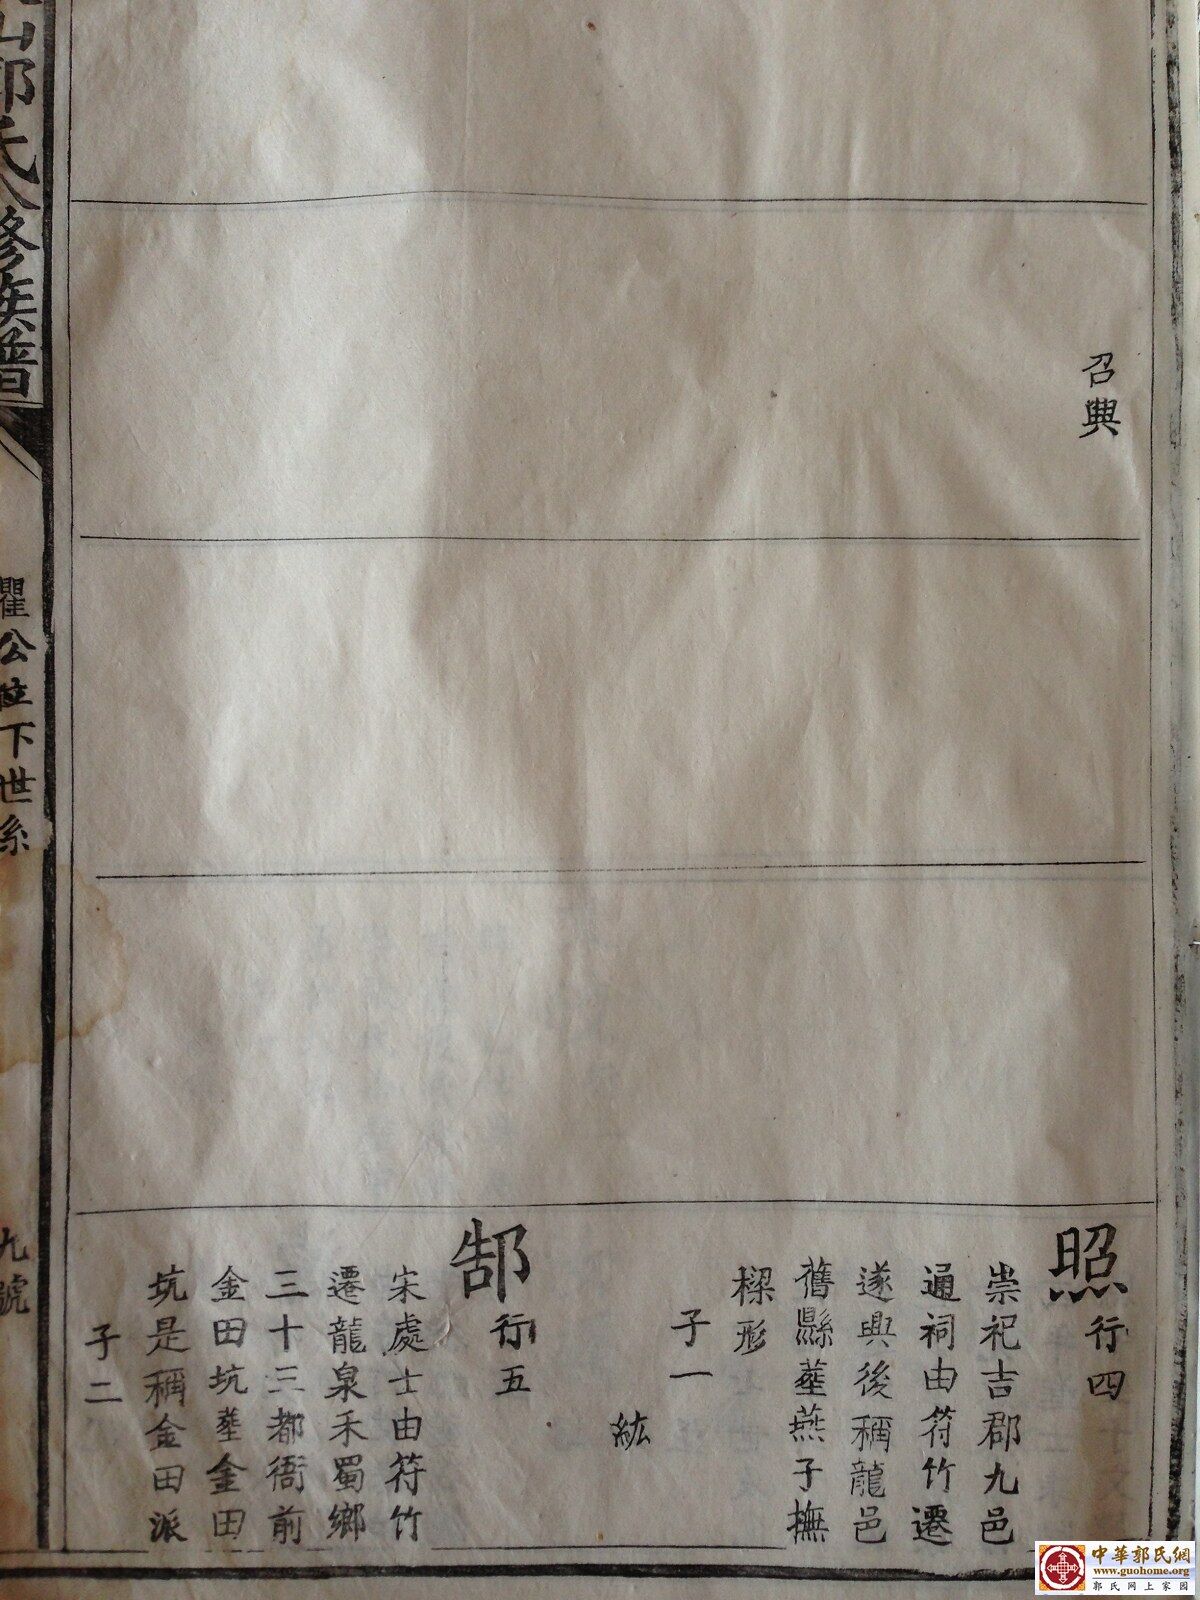 召興
照 行四
崇祀吉郡九邑
通祠由符竹遷
遂興後稱龍邑
舊縣塟燕子撫
樑形
子一
紘
郜 行五
宋處士由符竹
遷龍泉禾蜀鄉
三十三都衙前
金田坑塟金田
坑是稱金田派
子二
山郭氏八修族譜
瞿公位下世系
九號
中華郭氏網
www.guohome.org
郭氏网上家园